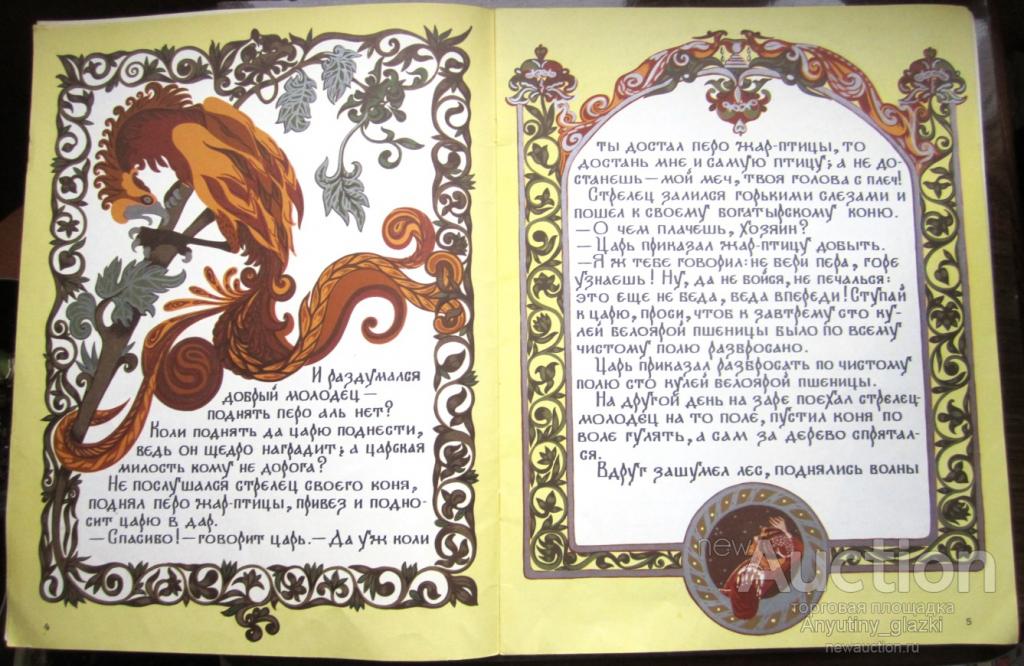 И раздумался
добрый молодец —
поднять перо аль нет?
Коли поднять да царю поднести,
ведь он щедро наградит; а царская
милость кому не дорога?
Не послушался стрелец своего коня,
поднял перо жар-птицы, привез и подно-
сит царю в дар.
— Спасибо! — говорит царь. — Да уж коли
4
ты достал перо жар-птицы, то
достань мне и самую птицу; а не до-
станешь — мой меч, твоя голова с плеч!
Стрелец залился горькими слезами и
пошел к своему богатырскому коню.
— О чем плачешь, хозяин?
— Царь приказал жар-птицу добыть.
— Я ж тебе говорил: не бери пера, горе
узнаешь! Ну, да не бойся, не печалься:
это еще не беда, беда впереди! Ступай
к царю, проси, чтоб к завтрему сто ку-
лей белоярой пшеницы было по всему
чистому полю разбросано.
Царь приказал разбросать по чистому
полю сто кулей белоярой пшеницы.
На другой день на заре поехал стрелец-
молодец на то поле, пустил коня по
воле гулять, а сам за дерево спрятал-
ся.
Вдруг зашумел лес, поднялись волны
5
newAuction
торговая площадка
Anyutiny_glazki
newauction.ru